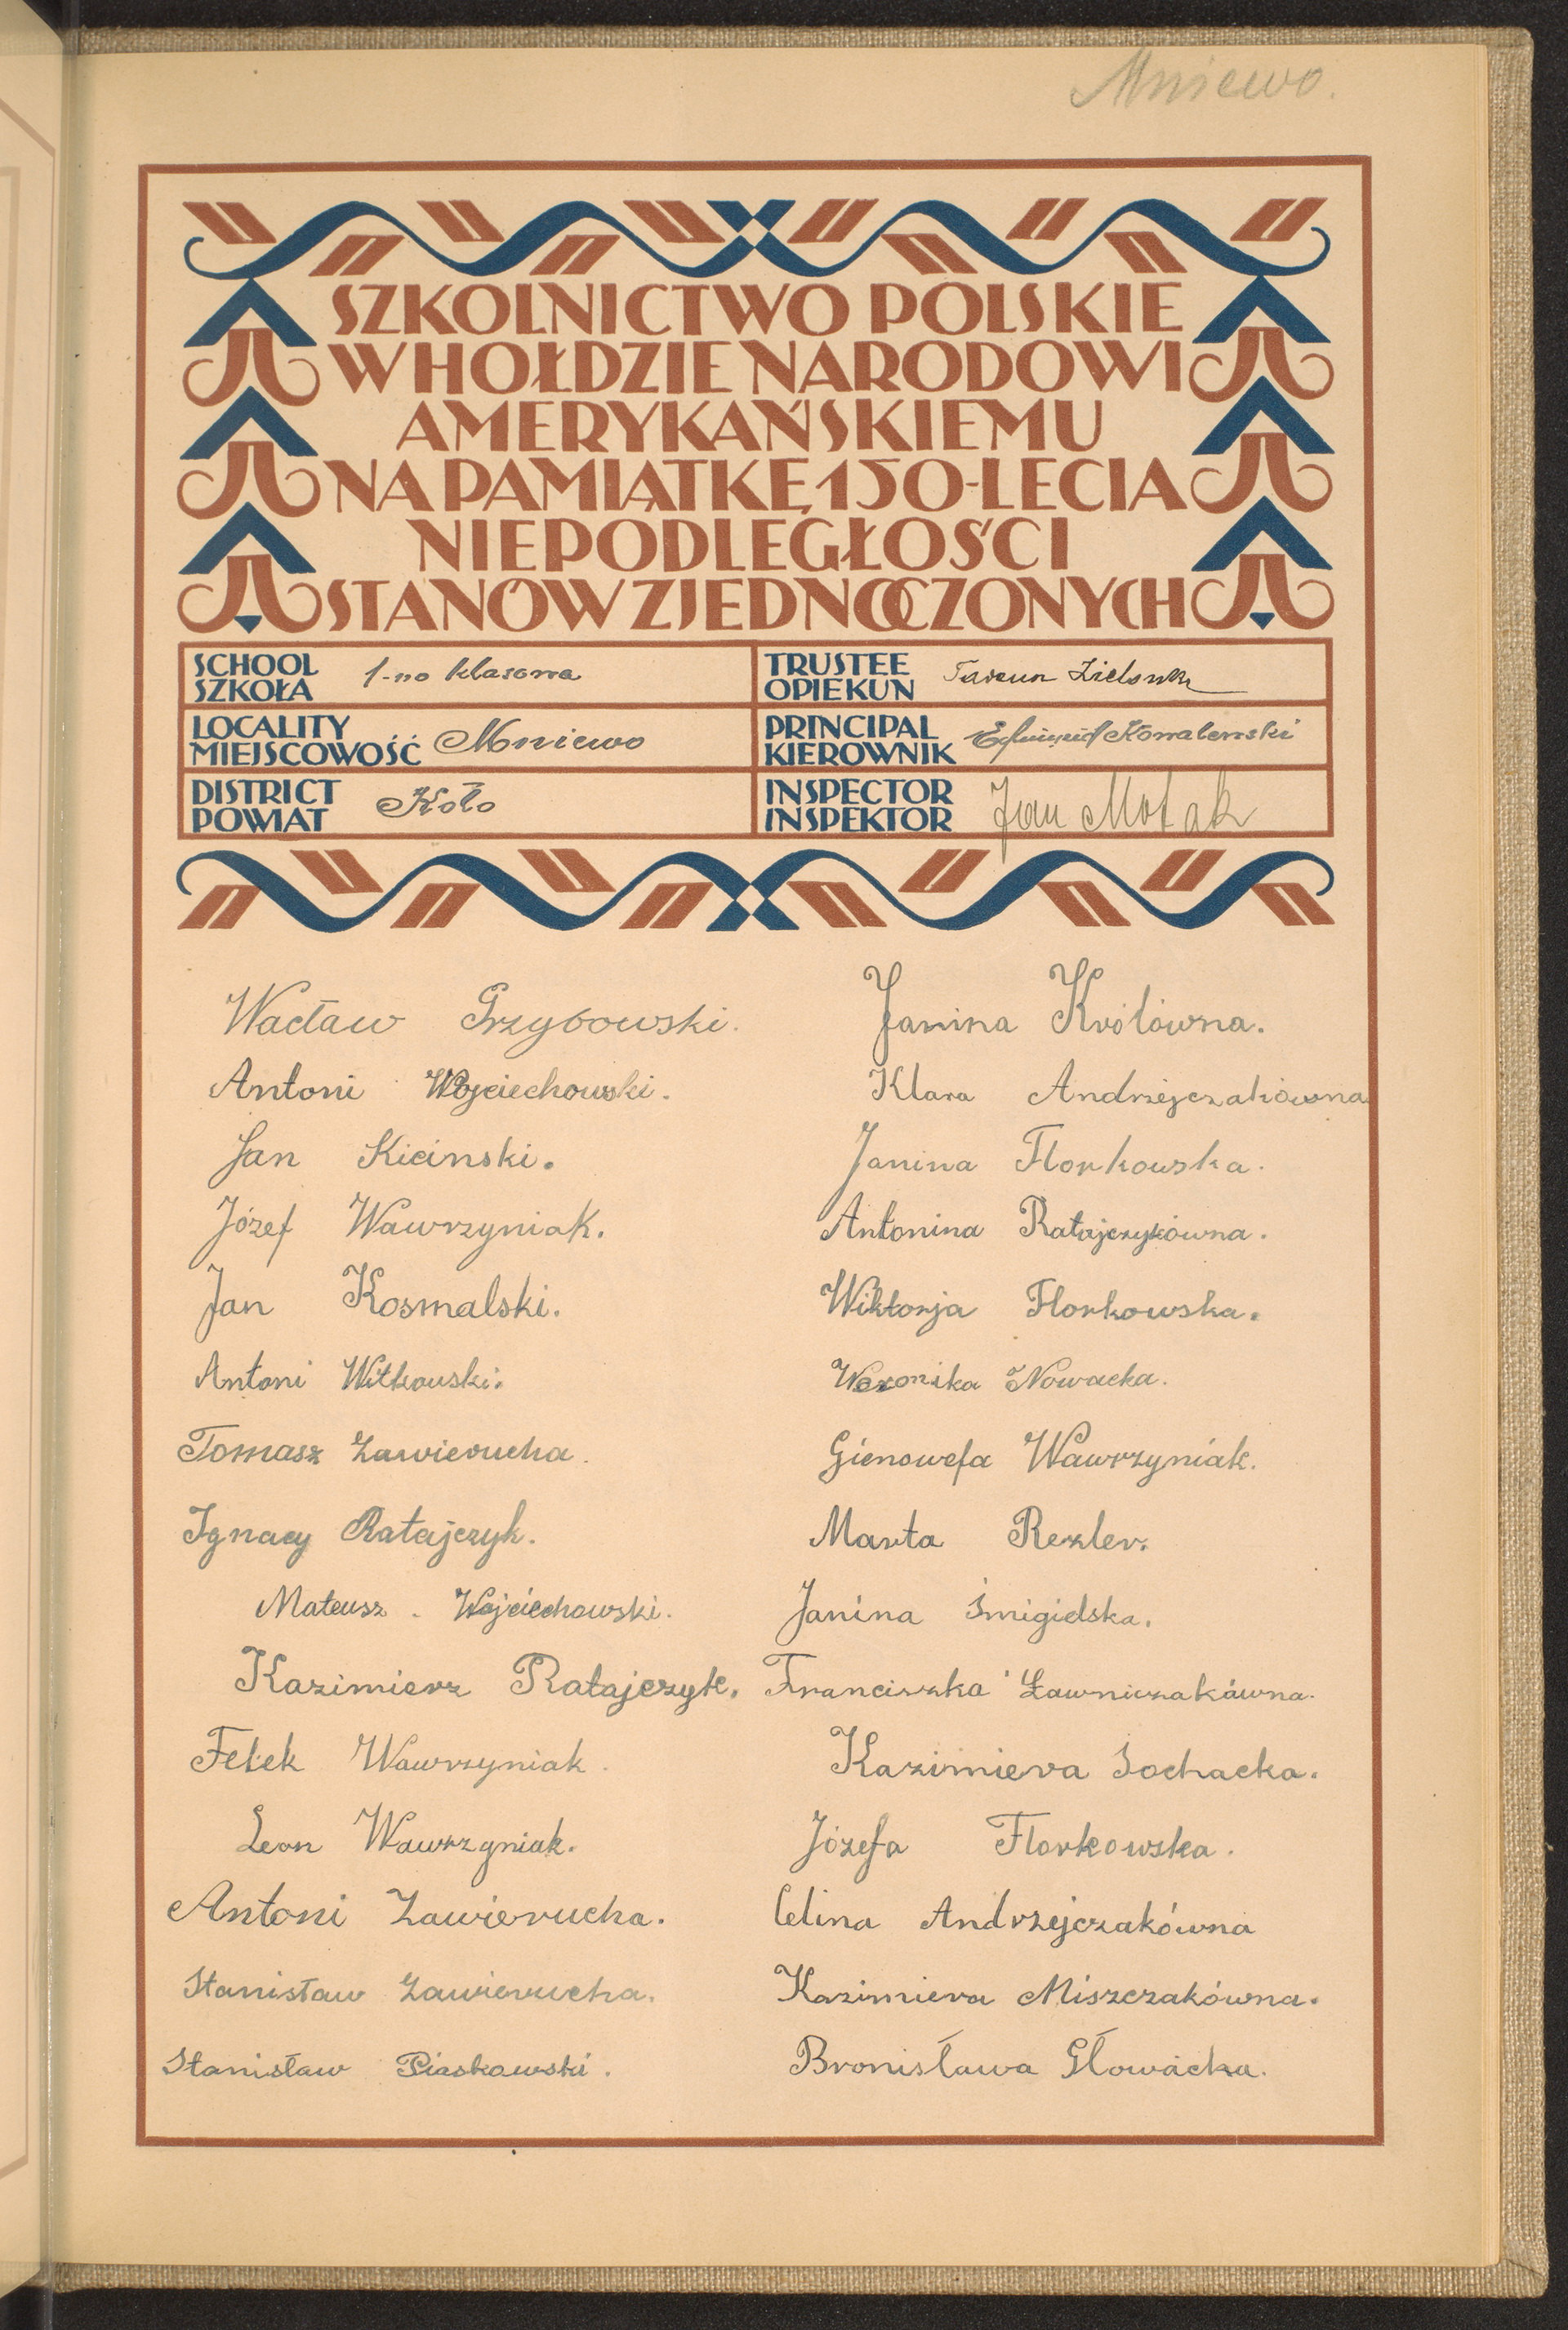 Mniewo.
SZKOLNICTWO POLSKIE
W HOŁDZIE NARODOWI
AMERYKAŃSKIEMU
NA PAMIĄTKĘ 150-LECIA
NIEPODLEGŁOŚCI
STANÓW ZJEDNOCZONYCH
SCHOOL
SZKOŁA 1-no klasowa
TRUSTEE
OPIEKUN
LOCALITY
MIEJSCOWOŚĆ Mniewo
PRINCIPAL
KIEROWNIK Edmund Kowalewski
DISTRICT
POWIAT Koło
INSPECTOR
INSPEKTOR Jan
Wacław Grzybowski.
Antoni Wojciechowski.
Jan Kicinski.
Józef Wawrzyniak.
Jan Kosmalski.
Antoni Witkowski.
Tomasz Zawierucha.
Ignacy Ratajczyk.
Mateusz Wojciechowski.
Kazimierz Ratajczyk.
Felek Wawrzyniak.
Leon Wawrzyniak.
Antoni Zawierucha.
Stanisław Zawierucha.
Stanisław Piaskowski.
Janina Królówna.
Klara Andrzejczakówna
Janina Florkowska.
Antonina Ratajczykówna.
Wiktorja Florkowska.
Weronika Nowacka.
Gienowefa Wawrzyniak.
Marta Rezler.
Janina Śmigielska.
Franciszka Ławniczakówna.
Kazimiera Sochacka.
Józefa Florkowska.
Celina Andrzejczakówna
Kazimiera Miszczakówna.
Bronisława Głowacka.